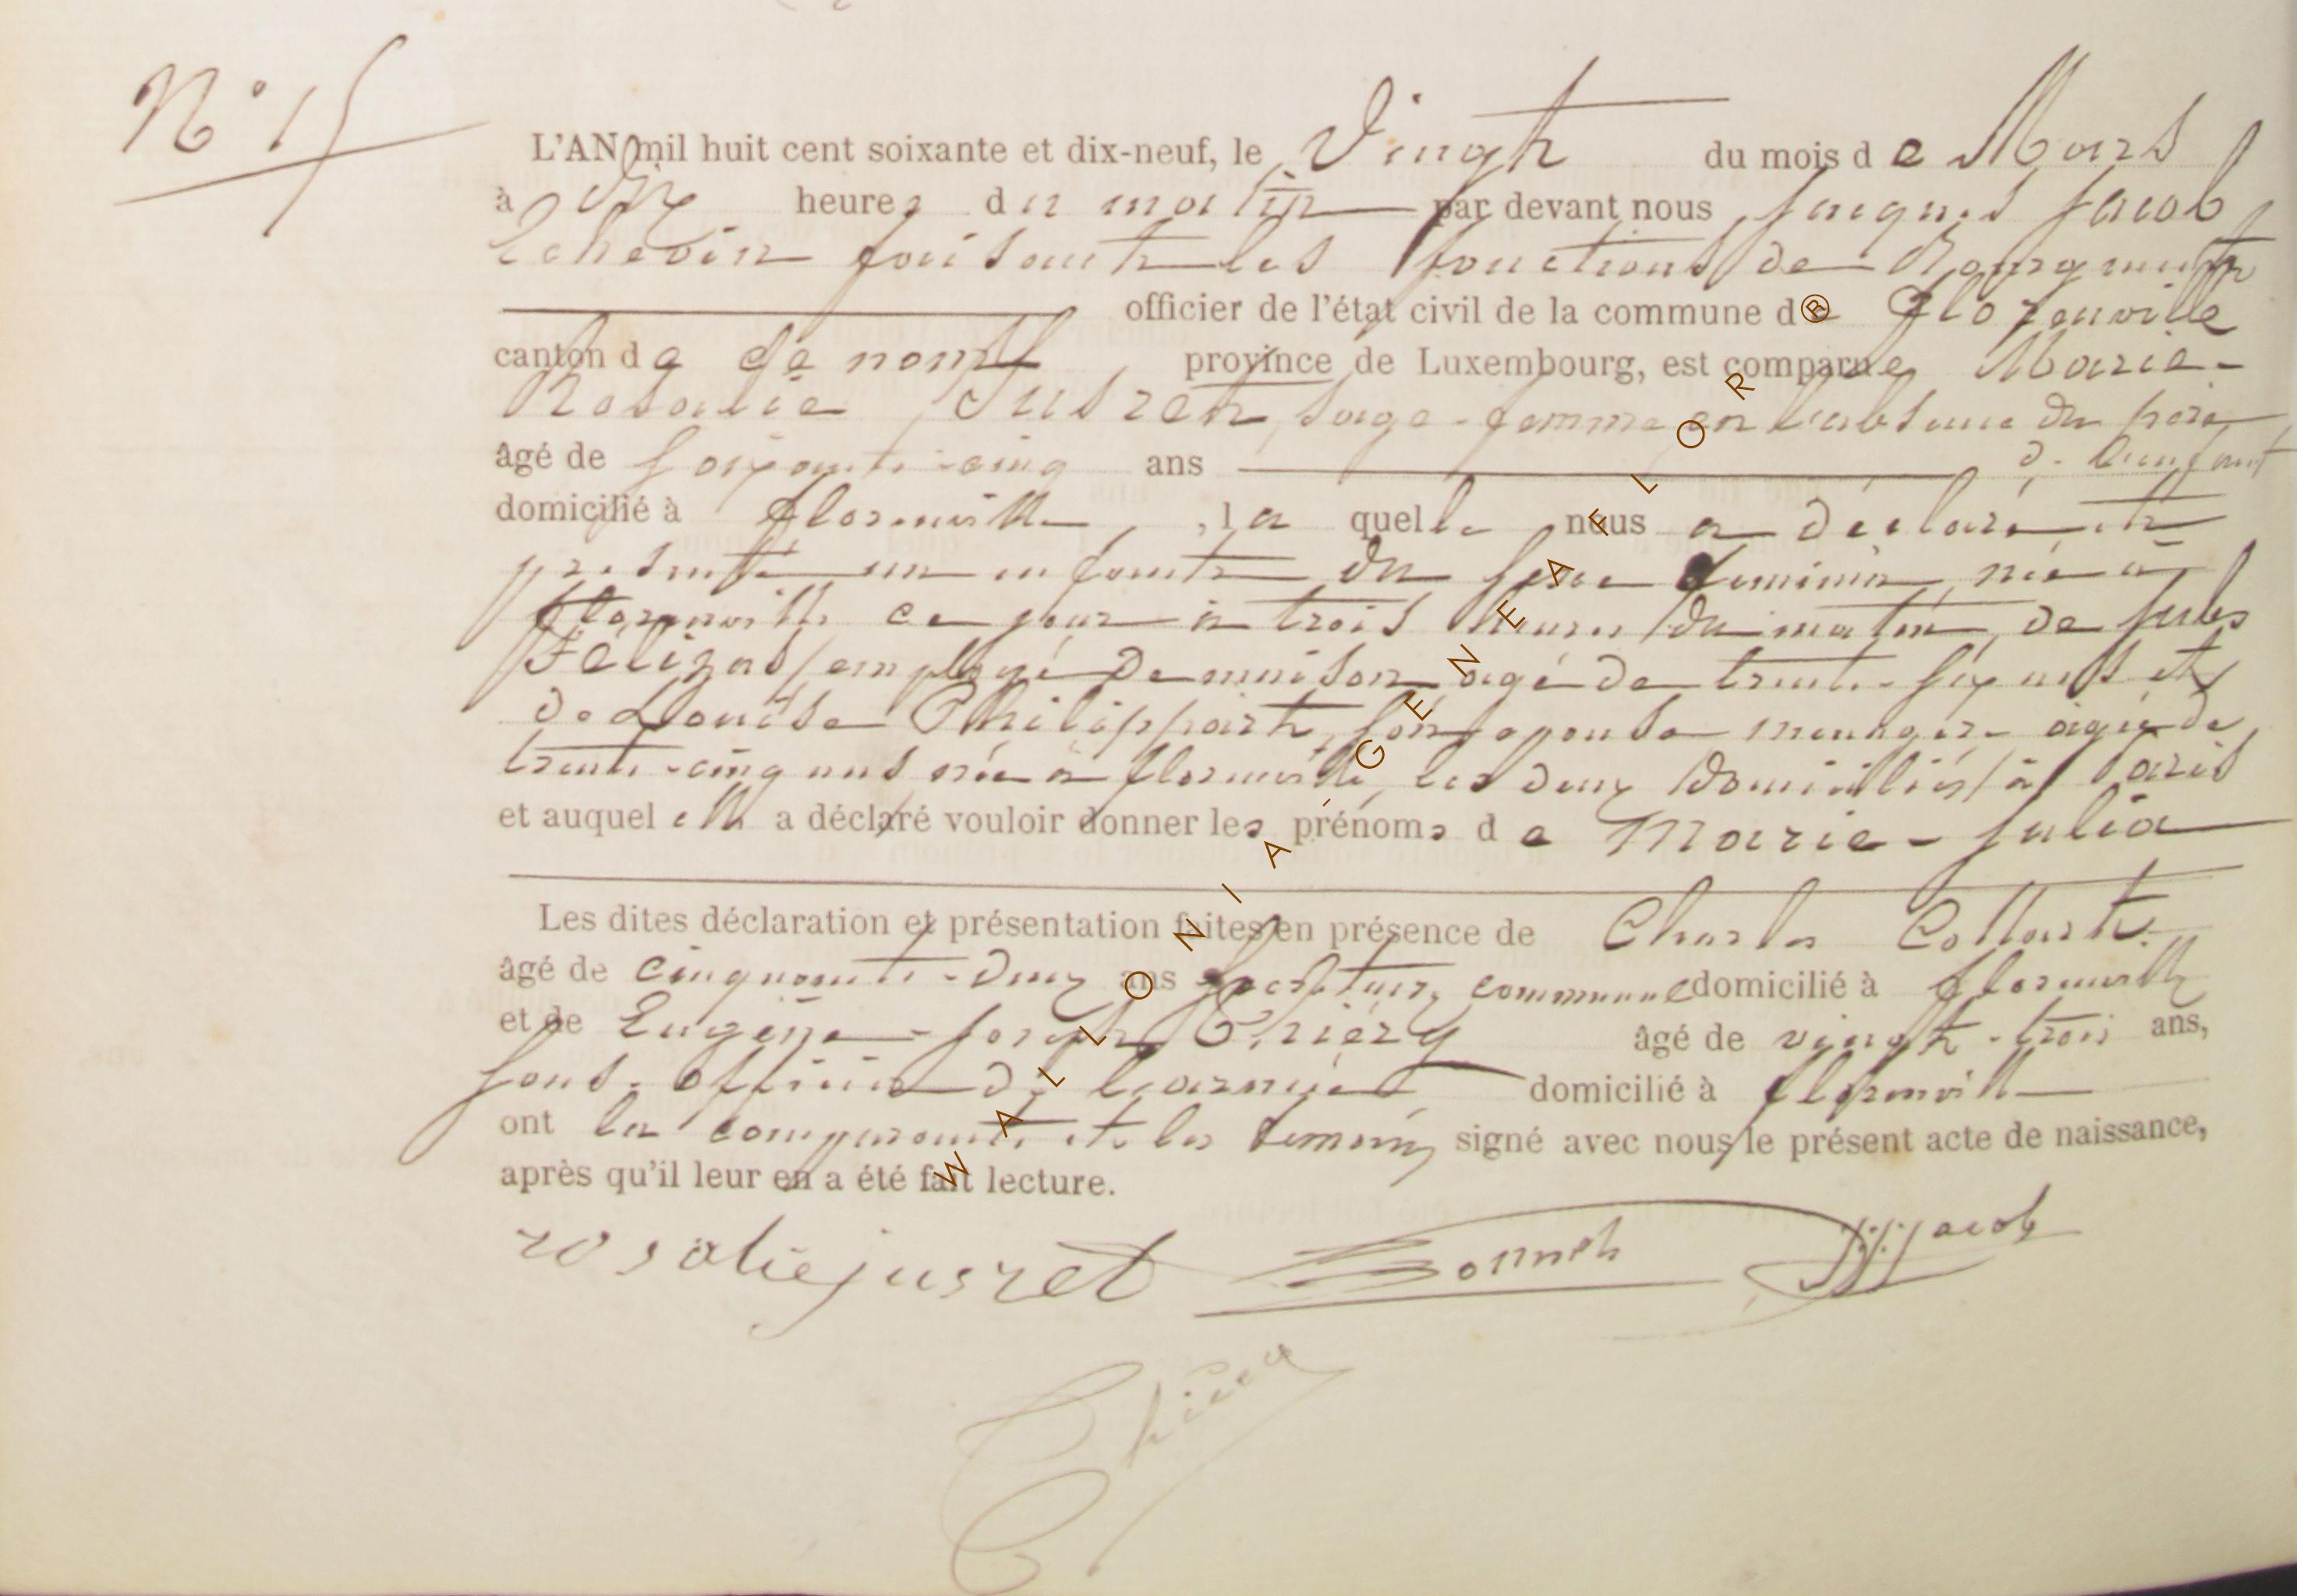 N° 15
L'AN mil huit cent soixante et dix-neuf, le Vingt du mois de Mars
à Dix heures du matin par devant nous Jacques Jacob
Echevin faisant les fonctions de Bourgmestre
officier de l'état civil de la commune de Florenville
canton de ce nom province de Luxembourg, est comparue Marie-
Rosalie Jusret, sage-femme en l'absence du père
de l'enfant
âgé de soixante-cinq ans
domicilié à florenville, laquelle nous a déclaré et
présenté un enfant du sexe féminin, née à
florenville ce jour à trois heures du matin, de Jules
Félizas employé de maison âgé de trente-six ans et
de Louise Philippart, son épouse ménagère âgée de
trente-cinq ans née à florenville, les deux domiciliés à Paris
et auquel elle a déclaré vouloir donner les prénoms de Marie-Julia
Les dites déclaration et présentation faites en présence de Charles Collart
âgé de cinquante-deux ans communal domicilié à florenville
et de Eugène-Joseph Thiéry âgé de vingt-trois ans,
sous-officier de l'armée domicilié à florenville
ont la comparante et les témoins signé avec nous le présent acte de naissance,
après qu'il leur en a été fait lecture.
rosalie jusret J.J. Jacob
Thiéry
WALLONIA GENEAFLOR ®